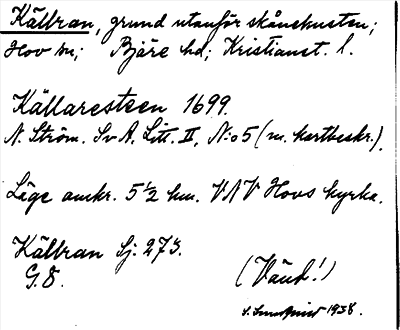 Källran, grund utanför skånekusten;
Hov sn; Bjäre hd; Kristianst. l.
Källaresteen 1699.
N. Ström. Sv A. Litt. II, N:o 5 (m. kartbeskr.).
Läge omkr. 5 1/2 km. VNV Hovs kyrka.
Källran Sj. 273.
G.8.
(Vänd!)
1938.